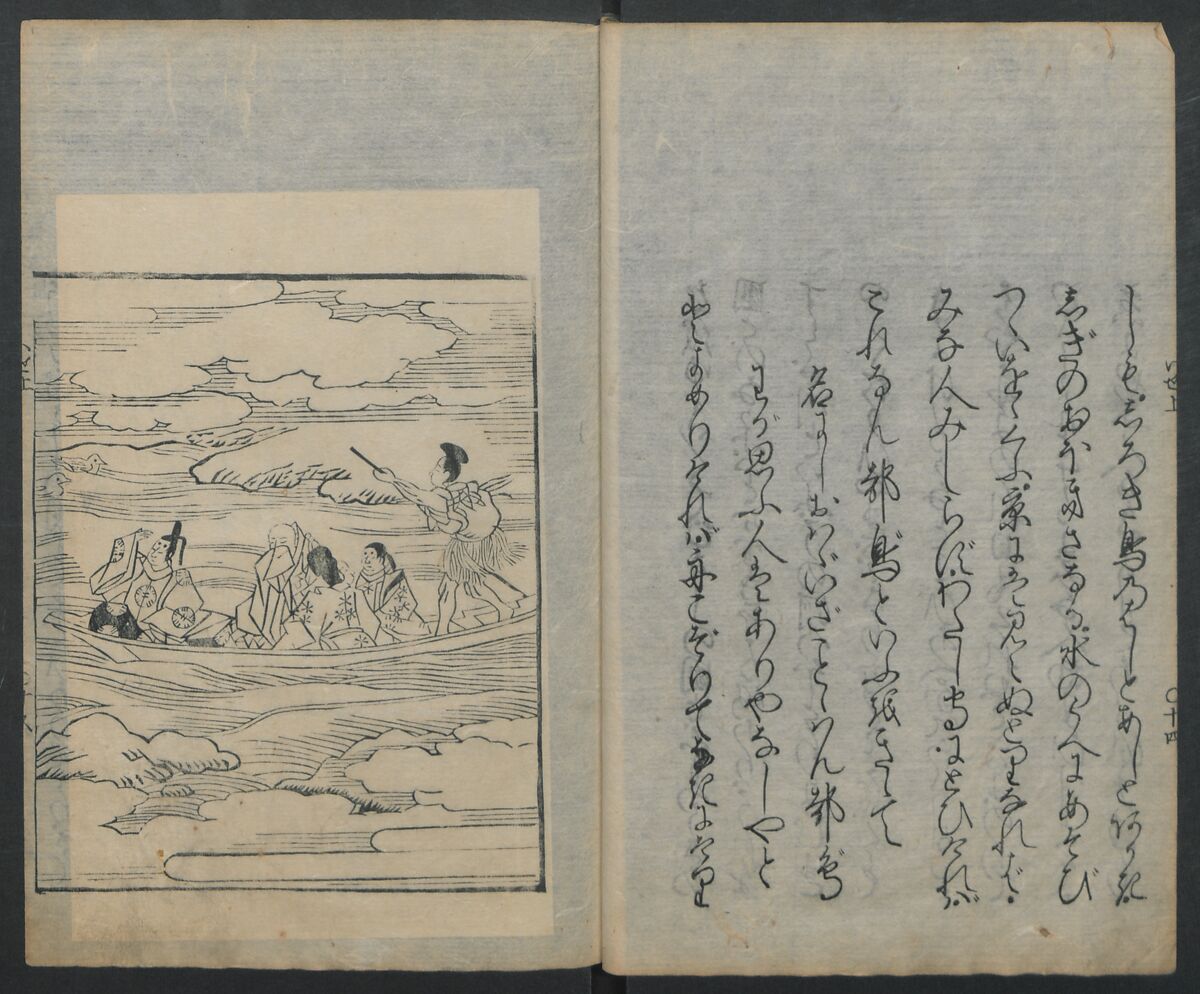 しもしろき鳥のはしとあしとあかき
しぎのおほきさなる水のうへにあそび
つゝいをゝくふ京にはみえぬとりなれば
みな人みしらずわたしもりにとひければ
これなん都鳥といふをきゝて
名にしおはゞいざことゝはん都鳥
わが思ふ人はありやなしやと
とよめりければ舟こぞりてなきにけり
いせ上
〇十四